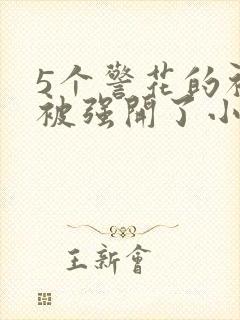 5个警花的
被强開了小
王新會